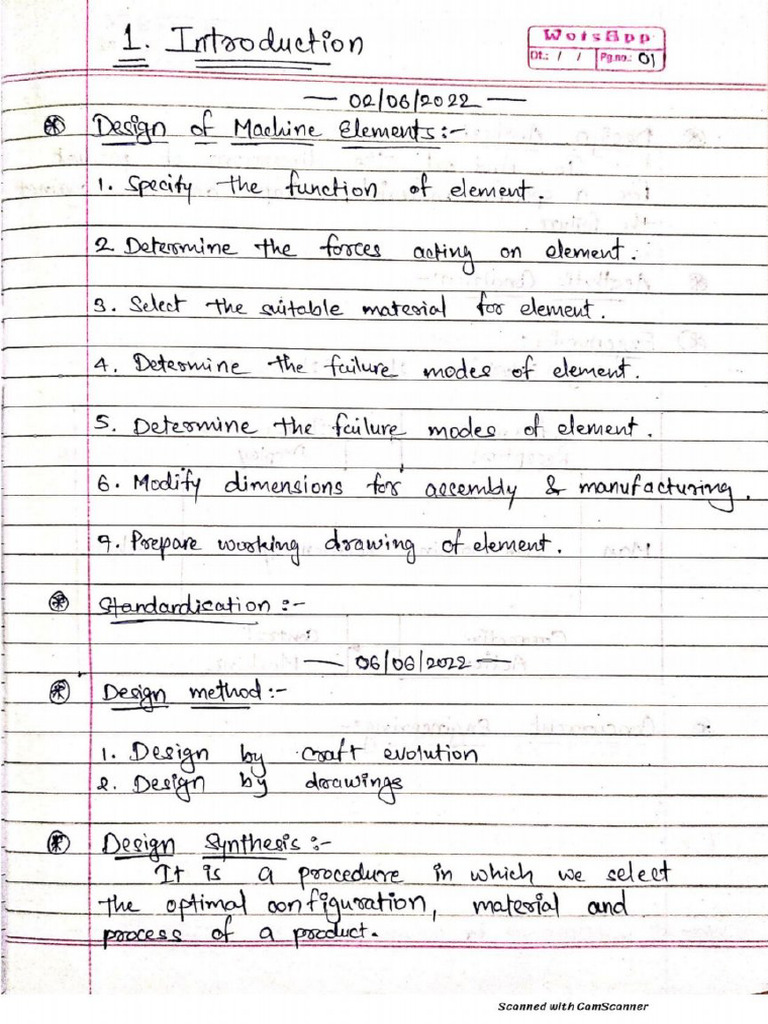 1. Introduction
WotsApp
Dt.: / / Pg.no.: 01
— 02/06/2022 —
Design of Machine Elements:-
1. Specify the function of element.
2. Determine the forces acting on element.
3. Select the suitable material for element.
4. Determine the failure modes of element.
5. Determine the failure modes of element.
6. Modify dimensions for assembly & manufacturing.
7. Prepare working drawing of element.
Standardisation :-
— 06/06/2022 —
Design method :-
1. Design by craft evolution
2. Design by drawings
Design Synthesis :-
It is a procedure in which we select
the optimal configuration, material and
process of a product.
Scanned with CamScanner